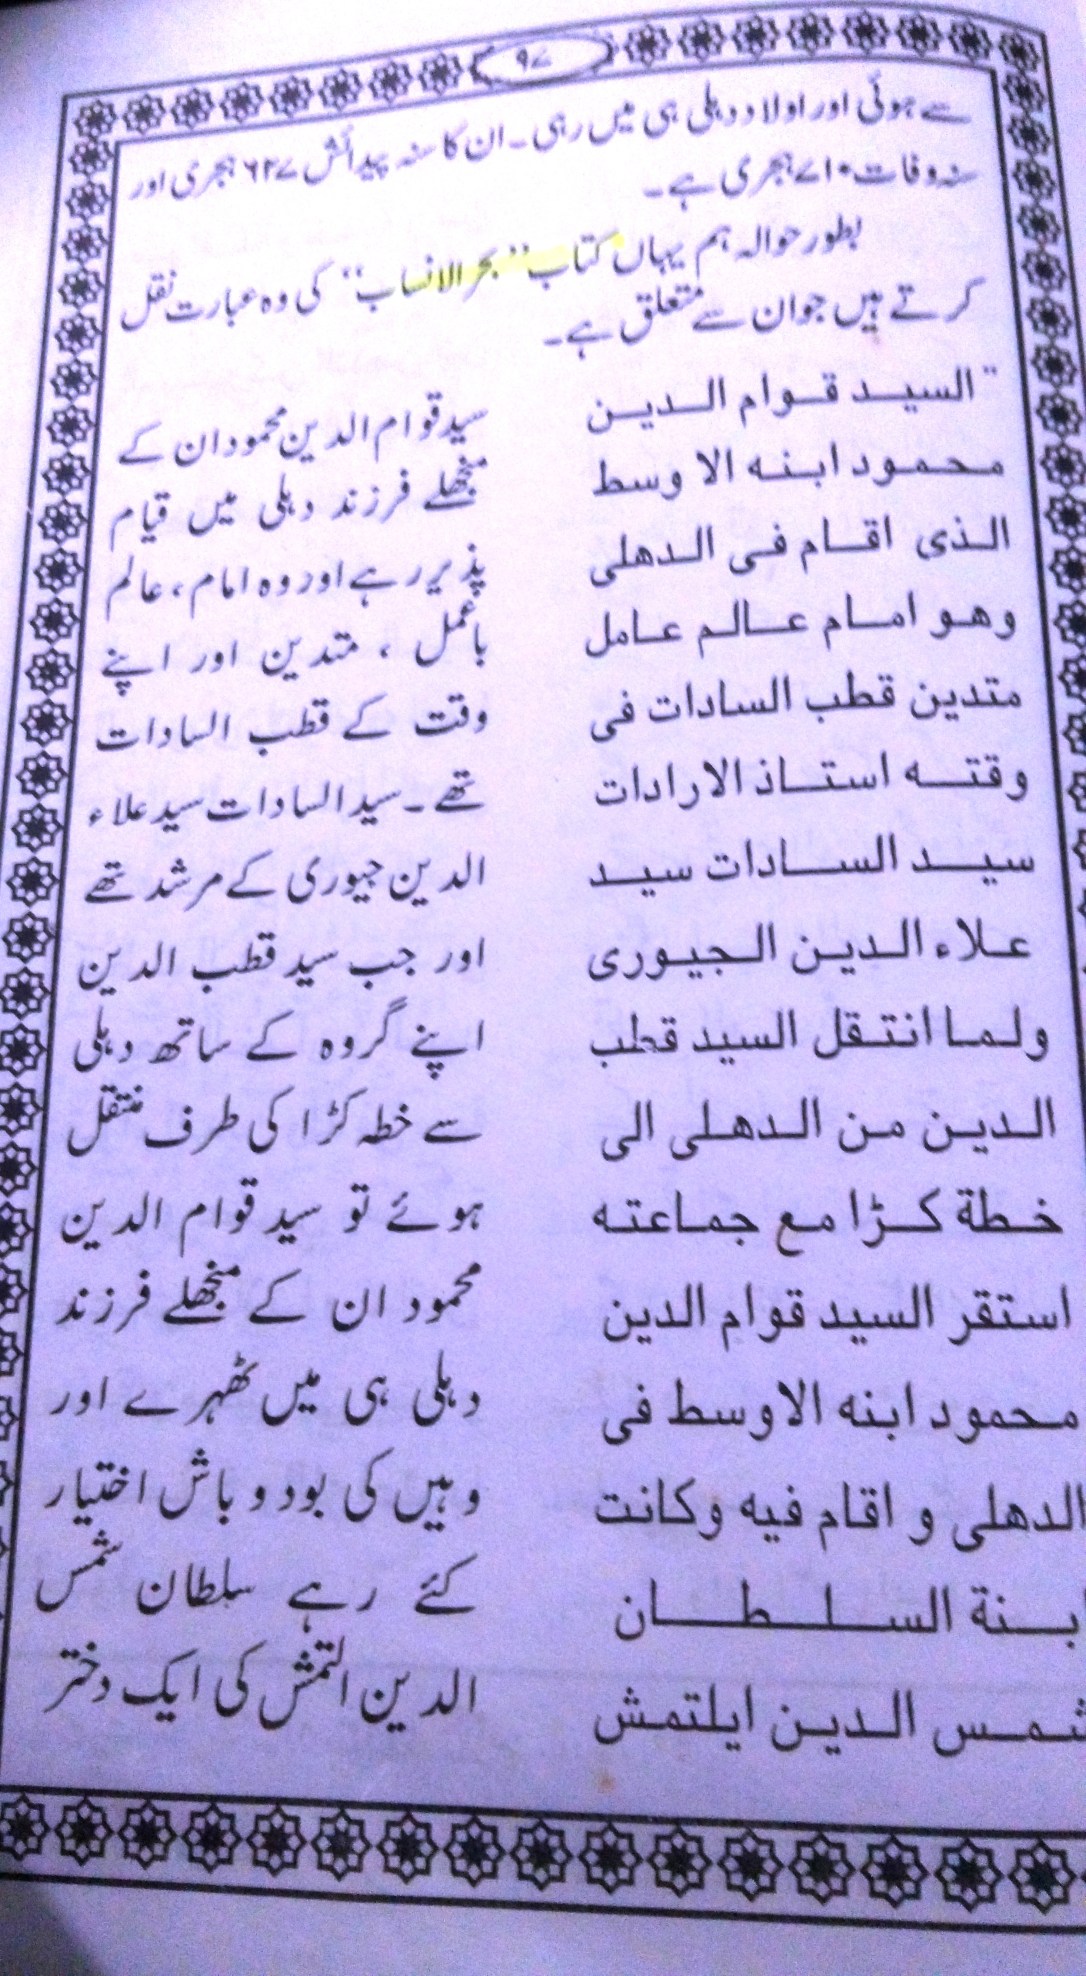 ۹۷
سے ہوئی اور اولاد دہلی ہی میں رہی۔ ان کا سنہ پیدائش ۶۲۷ ہجری اور
سنہ وفات ۷۱۰ ہجری ہے۔
بطور حوالہ ہم یہاں کتاب ”بحر الانساب“ کی وہ عبارت نقل
کرتے ہیں جو ان سے متعلق ہے۔
"السید قوام الدین
محمود ابنه الاوسط
الذی اقام فی الدهلی
وهو امام عالم عامل
متدین قطب السادات فی
وقته استاذ الارادات
سید السادات سید
علاء الدین الجیوری
ولما انتقل السید قطب
الدین من الدهلی الی
خطة کڑا مع جماعته
استقر السید قوام الدین
محمود ابنه الاوسط فی
الدهلی و اقام فیه وکانت
ابنة السلطان
شمس الدین ایلتمش
سید قوام الدین محمود ان کے
منجھلے فرزند دہلی میں قیام
پذیر رہے اور وہ امام، عالم
باعمل، متدین اور اپنے
وقت کے قطب السادات
تھے۔ سید السادات سید علاء
الدین جیوری کے مرشد تھے
اور جب سید قطب الدین
اپنے گروہ کے ساتھ دہلی
سے خطہ کڑا کی طرف منتقل
ہوئے تو سید قوام الدین
محمود ان کے منجھلے فرزند
دہلی ہی میں ٹھہرے اور
وہیں کی بود و باش اختیار
کئے رہے سلطان شمس
الدین التمش کی ایک دختر